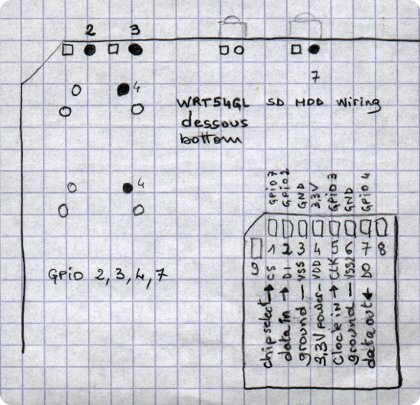 2 3
4 7
WRT54GL SD MOD Wiring
dessous
bottom
4
GPIO 2, 3, 4, 7
GPIO 7
GPIO 2
GND
3.3V
GPIO 3
GND
GPIO 4
9 1 2 3 4 5 6 7 8
chip select → CS
data in → DI
ground — VSS
3.3V power — VDD
Clock in → CLK
ground — VSS2
data out ← DO